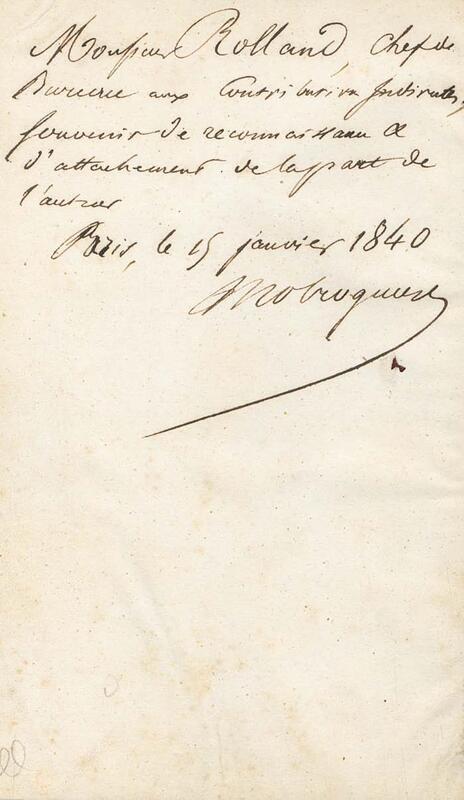 Monsieur Rolland, chef de
Bureau aux Contributions Indirectes,
souvenir de reconnaissance &
d'attachement de la part de
l'auteur
Paris, le 15 janvier 1840